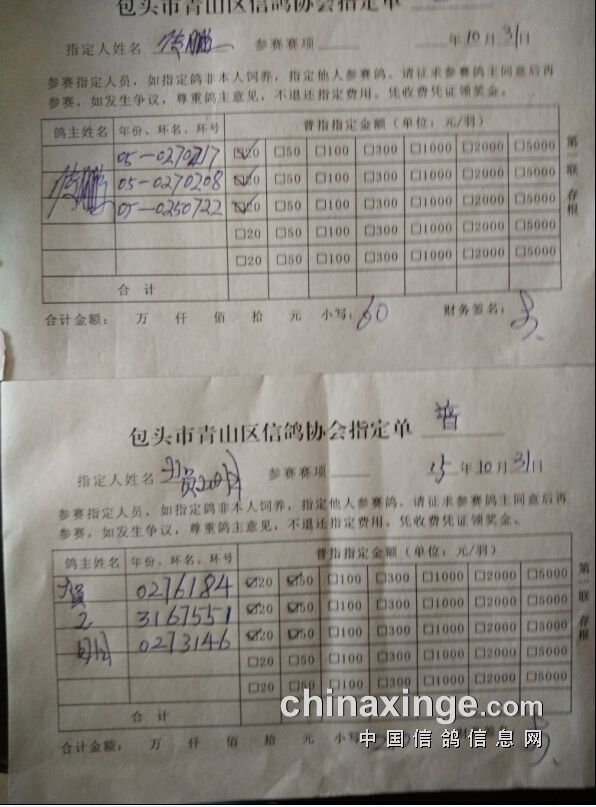 包头市青山区信鸽协会指定单
指定人姓名 参赛赛项 年10月31日
参赛指定人员，如指定鸽非本人饲养，指定他人参赛鸽。请征求参赛鸽主同意后再
参赛，如发生争议，尊重鸽主意见，不退还指定费用。凭收费凭证领奖金。
鸽主姓名 年份、环名、环号 普指指定金额（单位：元/羽）
05-0270217 ☑20 □50 □100 □300 □1000 □2000 □5000
05-0270208 ☑20 □50 □100 □300 □1000 □2000 □5000
05-0250722 ☑20 □50 □100 □300 □1000 □2000 □5000
□20 □50 □100 □300 □1000 □2000 □5000
□20 □50 □100 □300 □1000 □2000 □5000
第一联 存根
合计
合计金额： 万 仟 佰 拾 元 小写：60 财务签名：
包头市青山区信鸽协会指定单 普
指定人姓名 参赛赛项 15年10月31日
参赛指定人员，如指定鸽非本人饲养，指定他人参赛鸽。请征求参赛鸽主同意后再
参赛，如发生争议，尊重鸽主意见，不退还指定费用。凭收费凭证领奖金。
鸽主姓名 年份、环名、环号 普指指定金额（单位：元/羽）
0276184 ☑20 ☑50 □100 □300 □1000 □2000 □5000
3167551 ☑20 ☑50 □100 □300 □1000 □2000 □5000
0273146 ☑20 ☑50 □100 □300 □1000 □2000 □5000
□20 □50 □100 □300 □1000 □2000 □5000
□20 □50 □100 □300 □1000 □2000 □5000
第一联 存根
合计
合计金额： 万 仟 佰 拾 元 小写
chinaxinge.com
中国信鸽信息网